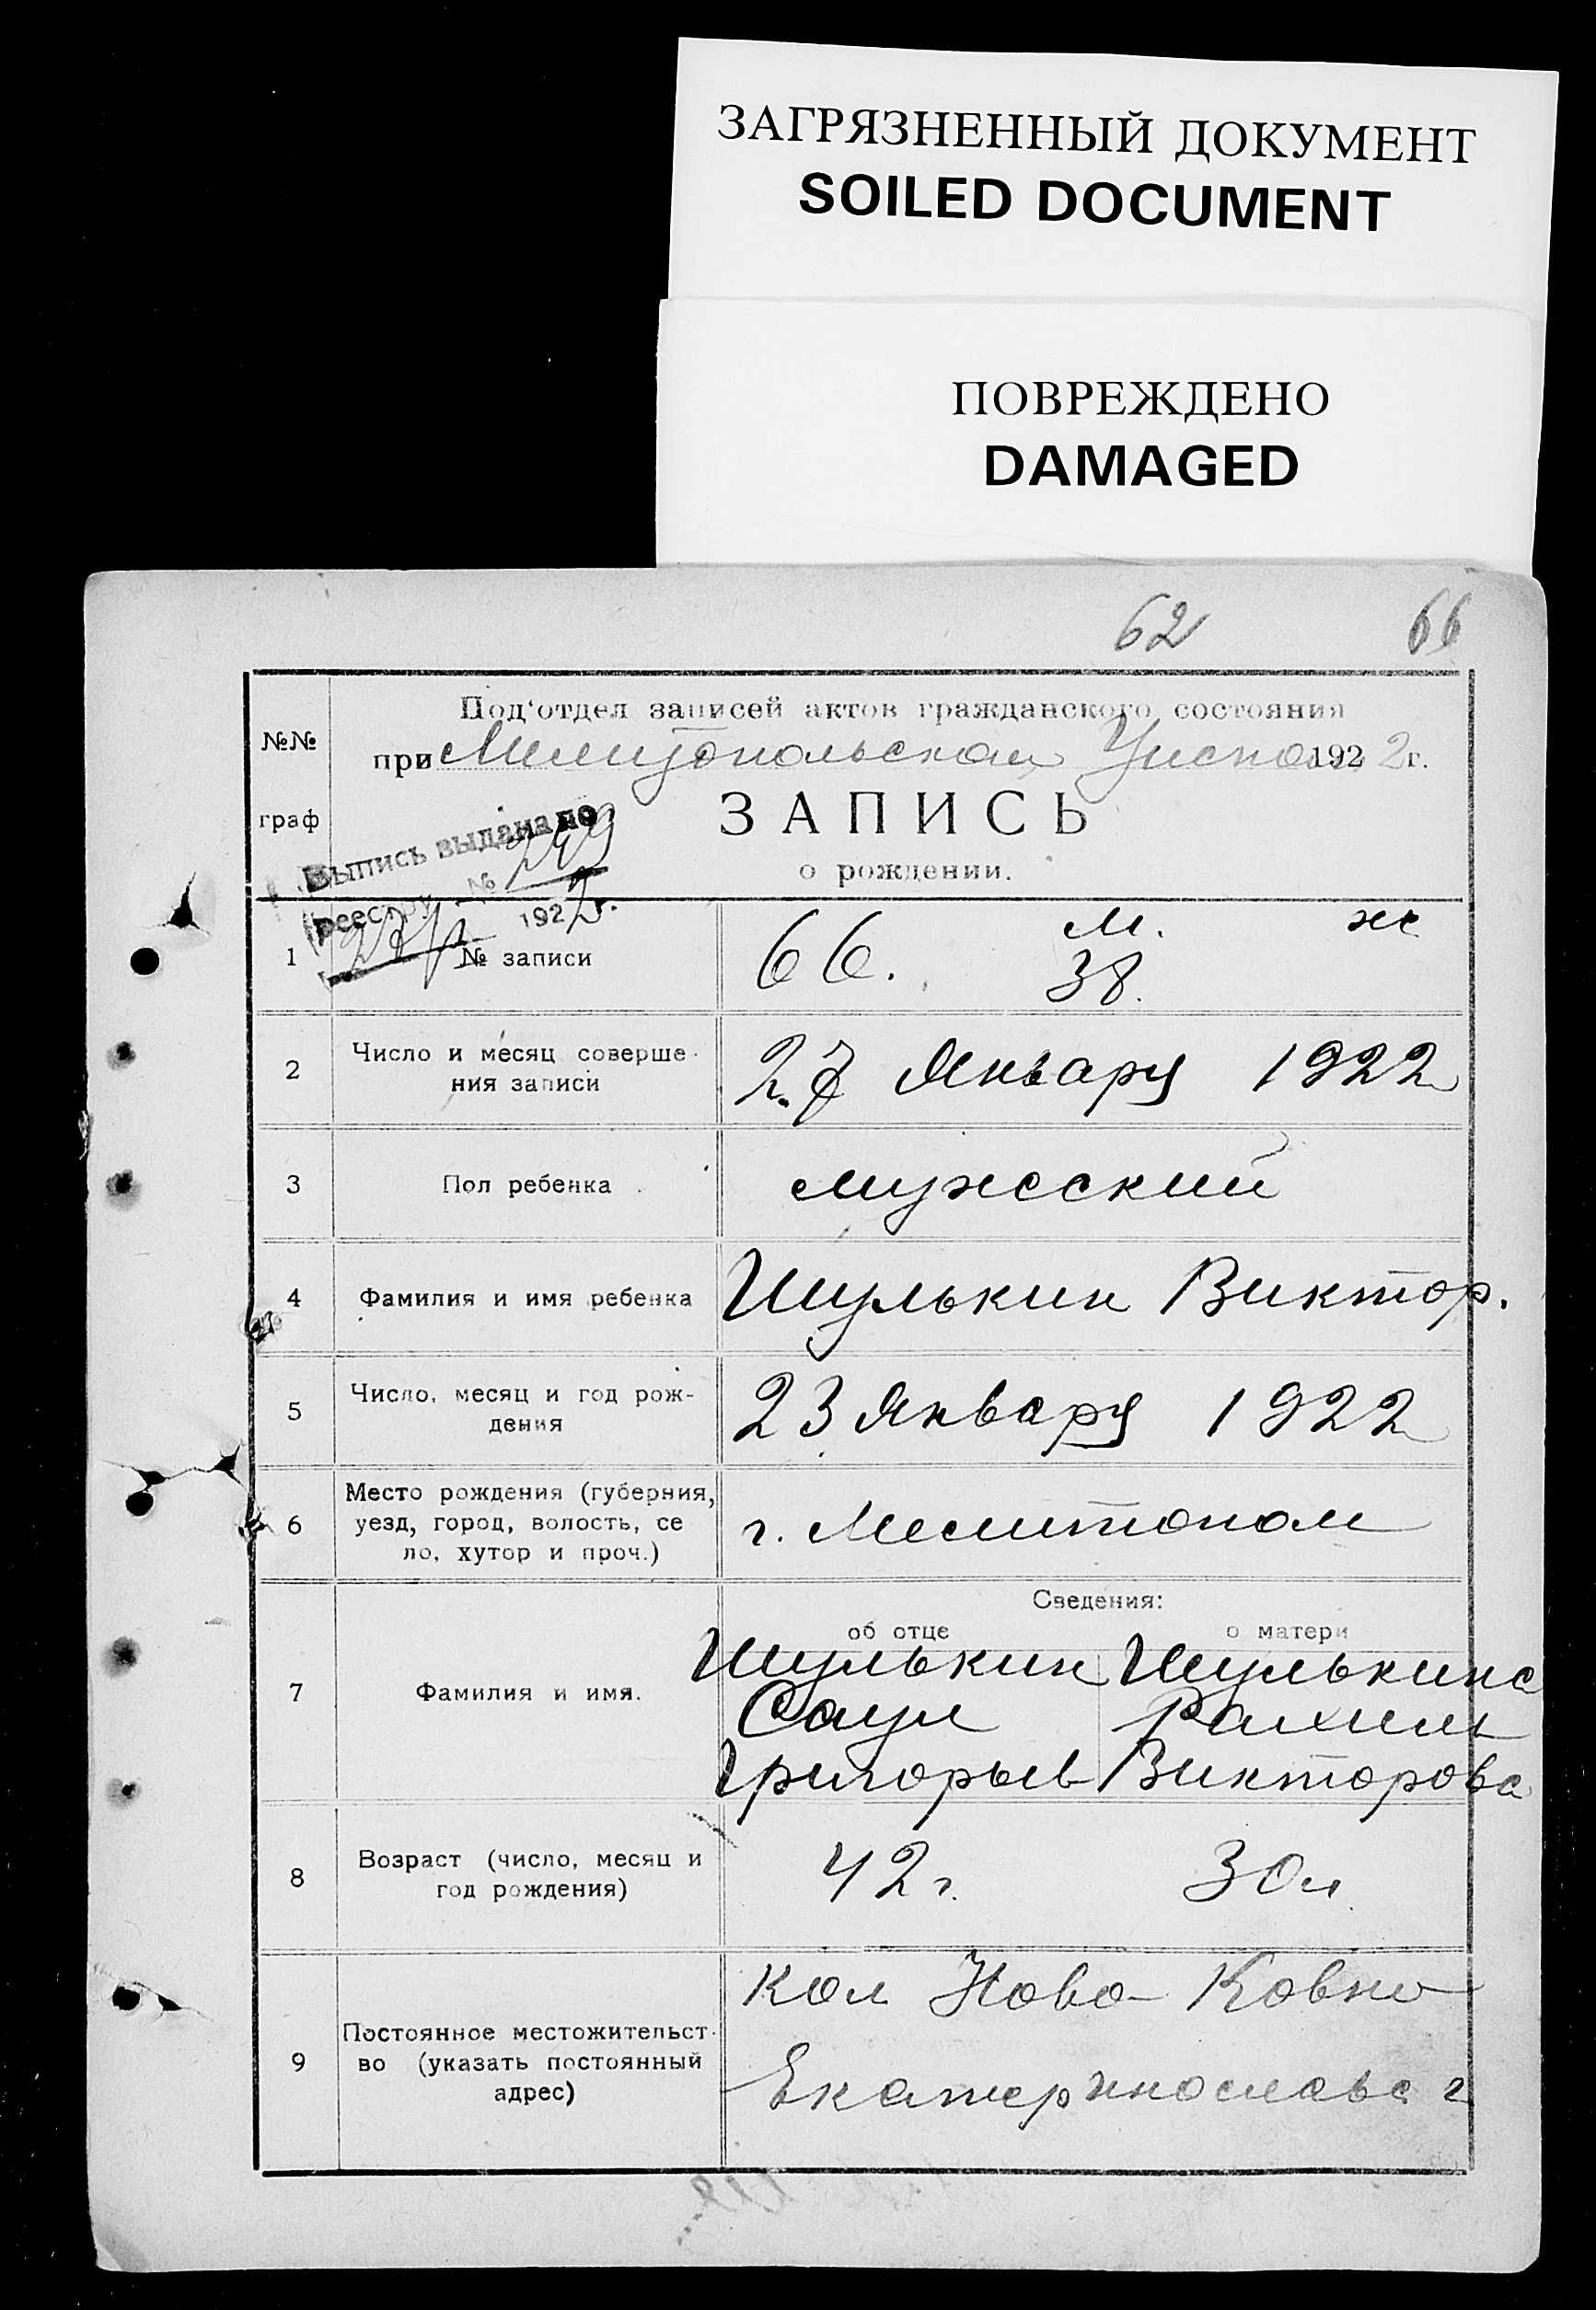 ЗАГРЯЗНЕННЫЙ ДОКУМЕНТ
SOILED DOCUMENT
ПОВРЕЖДЕНО
DAMAGED
62 66
№№ граф
Под‘отдел записей актов гражданского состояния
при Мелитопольском 1922 г.
ЗАПИСЬ
о рождении.
Выпись выдана по
реестру № 249
1922 г.
1 № записи 66. м. 38. ж
2 Число и месяц соверше-
ния записи 27 Января 1922
3 Пол ребенка мужеский
4 Фамилия и имя ребенка Шулькин Виктор.
5 Число, месяц и год рож-
дения 23 Января 1922
6 Место рождения (губерния,
уезд, город, волость, се
ло, хутор и проч.) г. Мелитополь
Сведения:
об отце о матери
7 Фамилия и имя. Шулькин Шулькина
Саул Рахиль
Григорьев Викторова
8 Возраст (число, месяц и
год рождения) 42 г. 30 л.
9 Постоянное местожительст-
во (указать постоянный
адрес)
кол Ново-Ковно
Екатеринославс г